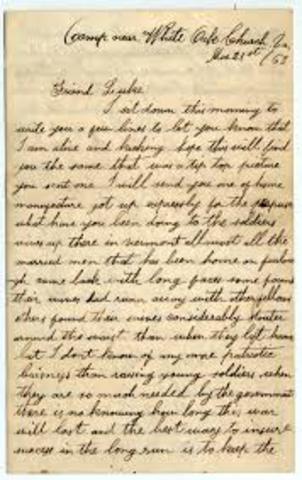 Camp near White Oak Church Va,
Mar 21st / 63
Friend Luke
I set down this morning to
write you a few lines to let you know that
I am alive and kicking hope this will find
you the same that was a tip top picture
you sent me I will send you one of home
got up expressly for the purpose
what have you been doing to the soldiers
wives up there in vermont all most all the
married men that has been home on furlough
come back with long faces some found
their wives had run away with other fellows
others found their wives considerably stouter
around the waist than when they left home
but I dont know of any more patriotic
than raising young soldiers when
they are so much needed by the government
there is no knowing how long this war
will last and the best way to insure
success in the long run is to keep the